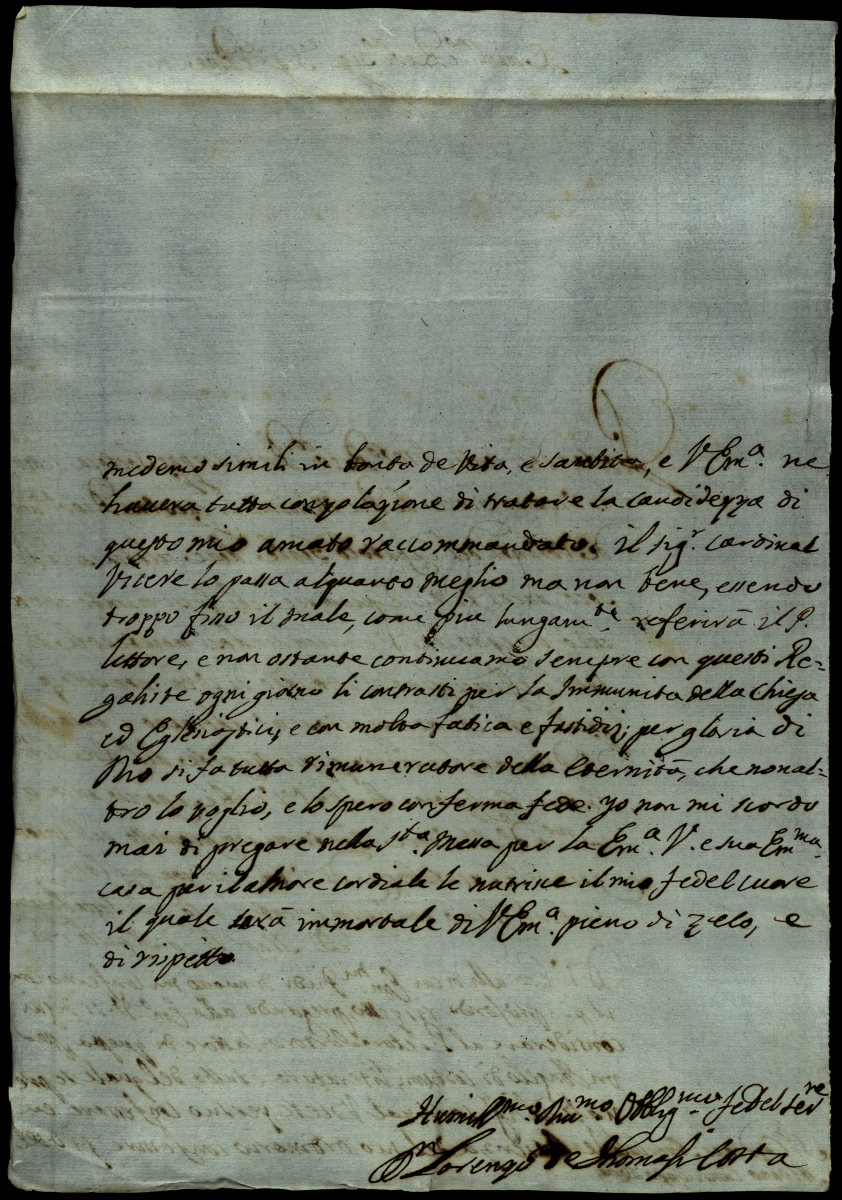 medemo simili in bontà de Vita, e santità, e V Em.ª ne
havera tutta consolazione di trattare la candidezza di
questo mio amato raccommandato. il sig.r Cardinal
Vicere lo passa alquanto meglio ma non bene, essendo
troppo fino il male, come piu lungam.te referirà il P.
lettore, e non ostante continuamo sempre con questi Re-
galiste ogni giorno li contrasti per la Immunita della Chiesa
ed Eglesiastici, e con molta fatica e fastidij; per gloria di
Dio si fa tutto rimuneratore della Eternità, che non al-
tro lo voglio, e lo spero con ferma fede. yo non mi scordo
mai di pregare nella S.ta Messa per la Em.ª V. e sua Em.ma
casa per il amore cordiale le nutrisce il mio fedel cuore
il quale serà immortale di V Em.ª pieno di zelo, e
di rispetto
Humill.mo Div.mo Obblig.mo fedel ser.re
Lorenzo de Thomasi Costa